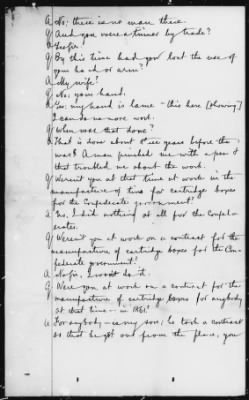 A No; there is no man there.
Q And you were a tinner by trade?
A Yes sir.
Q By this time had you lost the use of
your hand or arm?
A My wife?
Q No; your hand.
A Yes; my hand is lame - this here [showing]
I can do no more work.
Q When was that done?
A That is done about three years before the
war. A man punished me with a
that troubled me about the work.
Q Weren't you at that time at work in the
manufacture of tins for cartridge boxes
for the Confederate government?
A No, I did nothing at all for the Confed-
erates.
Q Weren't you at work on a contract for the
manufacture of cartridge boxes for the Con-
federate government?
A No sir, I would do it.
Q Were you at work on a contract for the
manufacture of cartridge boxes for anybody
at that time - in 1861?
A For anybody - is my son; he took a contract
so that he got out from the place, you